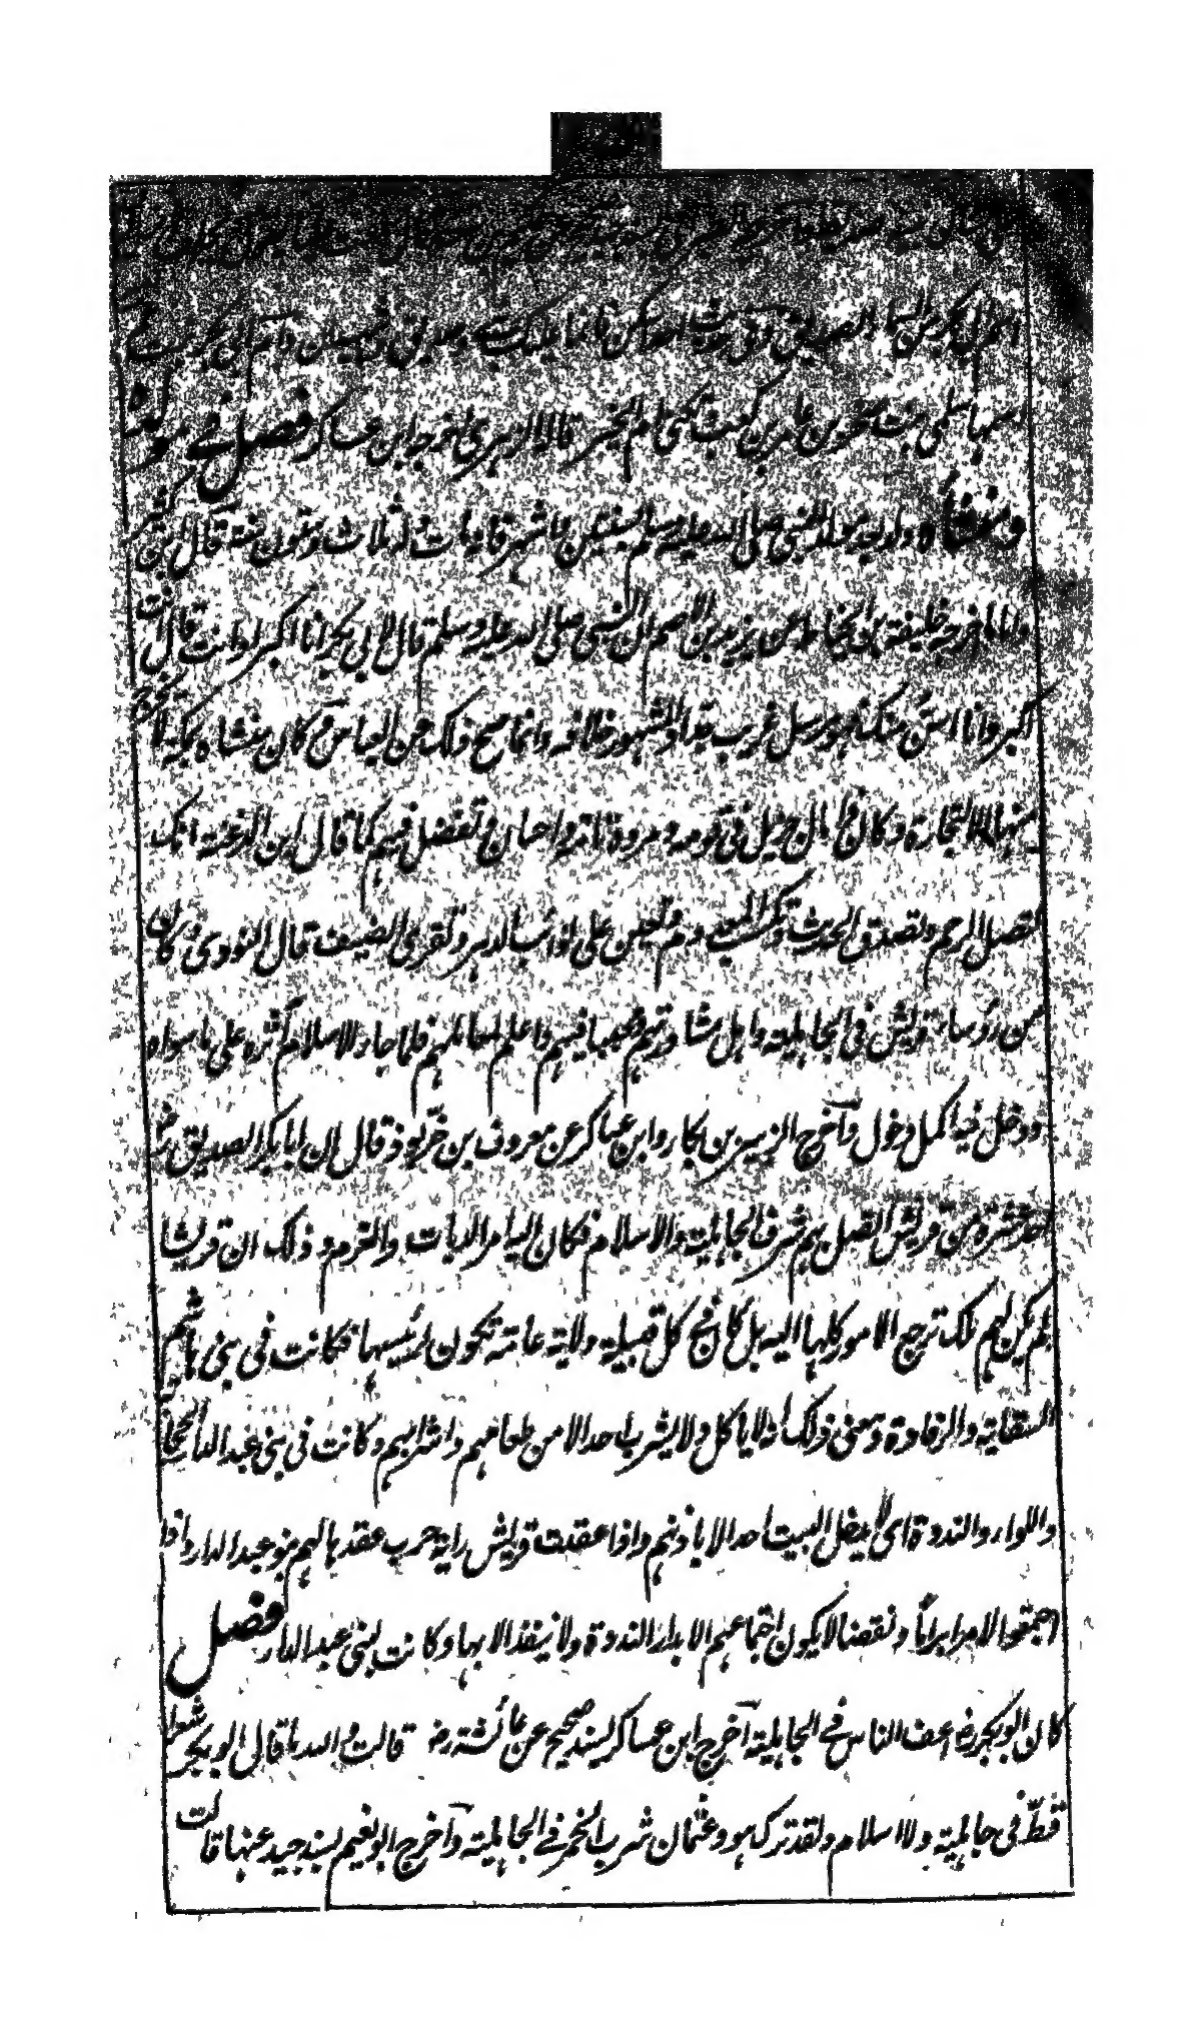 اسم ابي بكر على لسان
اسمها سلمى بنت صخر بن عامر بن كعب وتكنى ام الخير قاله الزهري اخرجه ابن عساكر فصل في مولده
ومنشأه ولد بعد مولد النبي صلى الله عليه وسلم بسنتين واشهر فانه مات وله ثلاث وستون سنة قال ابن كثير
واما ما اخرجه خليفة بن الخياط عن يزيد بن الاصم ان النبي صلى الله عليه وسلم قال لابي بكر انا اكبر او انت قال انت
اكبر وانا اسن منك فهو مرسل غريب جدا والمشهور خلافه وانما صح ذلك عن العباس وكان منشاه بمكة لا يخرج
منها الا لتجارة وكان ذا مال جزيل في قومه ومروة تامة واحسان وتفضل فيهم كما قال ابن الدغنة انك
لتصل الرحم وتصدق الحديث وتكسب المعدوم وتعين على نوائب الدهر وتقري الضيف قال النووي وكان
من رؤساء قريش في الجاهلية واهل مشاورتهم ومحببا فيهم واعلم لمعالمهم فلما جاء الاسلام آثره على ما سواه
ودخل فيه اكمل دخول وآخرج الزبير بن بكار وابن عساكر عن معروف بن خربوذ قال ان ابا بكر الصديق رض
احد عشرة من قريش اتصل بهم شرف الجاهلية والاسلام فكان اليه امر الديات والغرم وذلك ان قريشا
لم يكن لهم ملك ترجع الامور كلها اليه بل كان في كل قبيلة ولاية عامة تكون لرئيسها فكانت في بني هاشم
السقاية والرفادة ومعنى ذلك انه لا ياكل ولا يشرب احد الا من طعامهم وشرابهم وكانت في بني عبد الدار الحجابة
واللواء والندوة اى لا يدخل البيت احد الا باذنهم واذا عقدت قريش راية حرب عقدها لهم بنو عبد الدار واذا
اجتمعوا لامر ابراما ونقضا لا يكون اجتماعهم الا بدار الندوة ولا ينفذ الا بها وكانت لبني عبد الدار فصل
كان ابو بكر رض اعف الناس في الجاهلية آخرج ابن عساكر بسند صحيح عن عائشة رض قالت والله ما قال ابو بكر شعرا
قط في جاهلية ولا اسلام ولقد ترك هو وعثمان شرب الخمر في الجاهلية وآخرج ابو نعيم بسند جيد عنها قالت